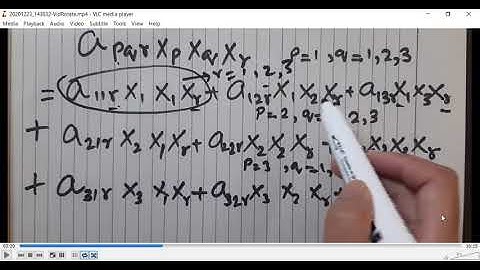 20201223_143032-VidRotate.mp4 - VLC media player
Media Playback Audio Video Subtitle Tools View Help
a pqr xp xq xr
p=1, q=1,2,3
r=1,2,3
= a11r x1 x1 xr + a12r x1 x2 xr + a13r x1 x3 xr
p=2, q= 2,3
+ a21r x2 x1 xr + a22r x2 x2 xr x3 xr
p=3, q=1,
+ a31r x3 x1 xr + a32r x3 x2 xr